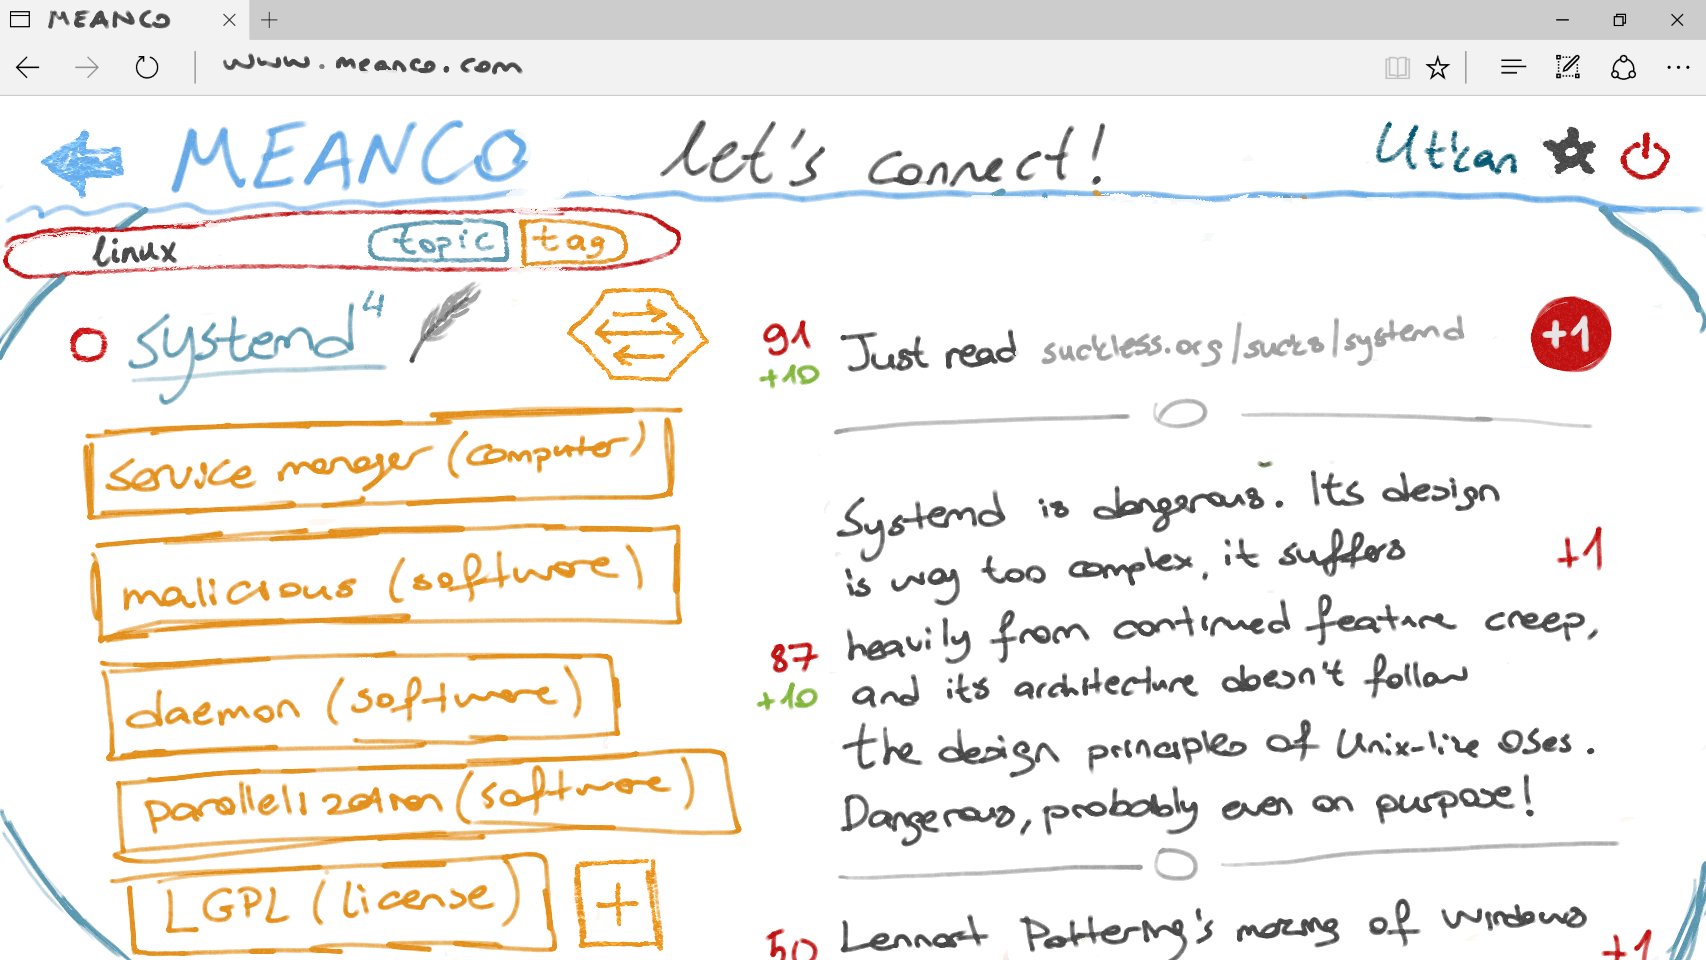 MEANCO
www.meanco.com
MEANCO let's connect! Utkan
linux topic tag
systemd 4
service manager (computer)
malicious (software)
daemon (software)
parallelization (software)
LGPL (license)
+
91
+10
Just read suckless.org/sucks/systemd
+1
Systemd is dangerous. Its design
is way too complex, it suffers
+1
heavily from continued feature creep,
87
+10
and its architecture doesn't follow
the design principles of Unix-like OSes.
Dangerous, probably even on purpose!
50
Lennart Pottering's of Windows
+1